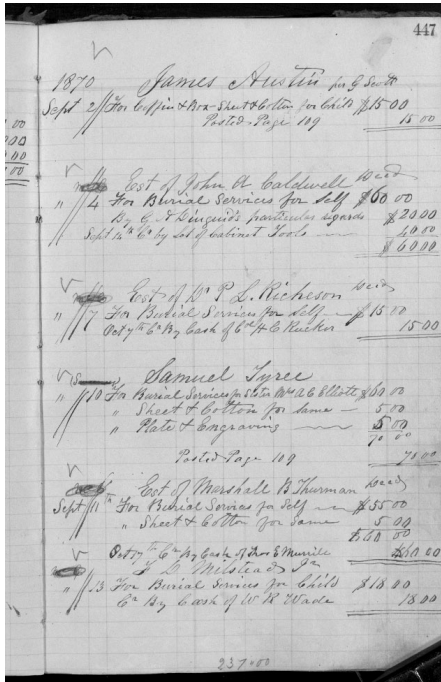 447
1870 James Austin per G Scott
Sept 2 For Coffin & Box Sheet & Cotton for Child $15 00
Posted Page 109 15 00
Est of John A Caldwell Decd
" 4 For Burial Services for Self $60 00
By G A Diuguid's particular regards $20.00
Sept 14th Cr by Set of Cabinet Tools 40 00
$60.00
Est of Dr P L. Richeson Decd
" 7 For Burial Services for Self $15.00
Oct 7th Cr By Cash of H C Rucker 15 00
Samuel Tyree
" 10 For Burial Services for Sister Mrs A E Elliott $60 00
" Sheet & Cotton for same 5.00
" Plate & Engraving 5 00
70 00
Posted Page 109 70 00
Est of Marshall B Thurman Decd
Sept 11th For Burial Services for Self $55 00
" Sheet & Cotton for Same 5 00
$60 00
Oct Cr By Cash of E Murrill $60 00
Milstead Jr
" 13 For Burial Services for Child $18.00
Cr By Cash of W R Wade 18 00
237.00
00
00
00
00